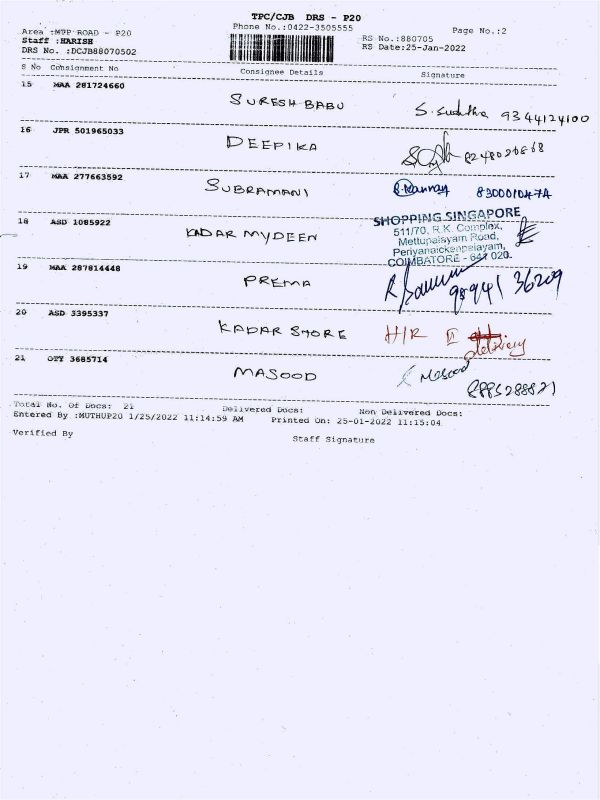 TPC/CJB DRS - P20
Area :MTP ROAD - P20 Phone No.:0422-3505555 Page No.:2
Staff :HARISH RS No.:880705
DRS No. :DCJB88070502 RS Date:25-Jan-2022
S No Consignment No Consignee Details Signature
15 MAA 281724660 SURESH BABU S. 9344124100
16 JPR 501965033 DEEPIKA
17 MAA 277663592 SUBRAMANI 8300010474
18 ASD 1085922 KADAR MYDEEN
SHOPPING SINGAPORE
511/70, R.K. Complex,
Mettupalayam Road,
Periyanaickenpalayam,
COIMBATORE - 641 020.
19 MAA 287814448 PREMA 98941 36209
20 ASD 3395337 KADAR STORE H/R II
delivery
21 OTY 3685714 MASOOD Masood
Total No. Of Docs: 21 Delivered Docs: Non Delivered Docs:
Entered By :MUTHUP20 1/25/2022 11:14:59 AM Printed On: 25-01-2022 11:15:04
Verified By Staff Signature